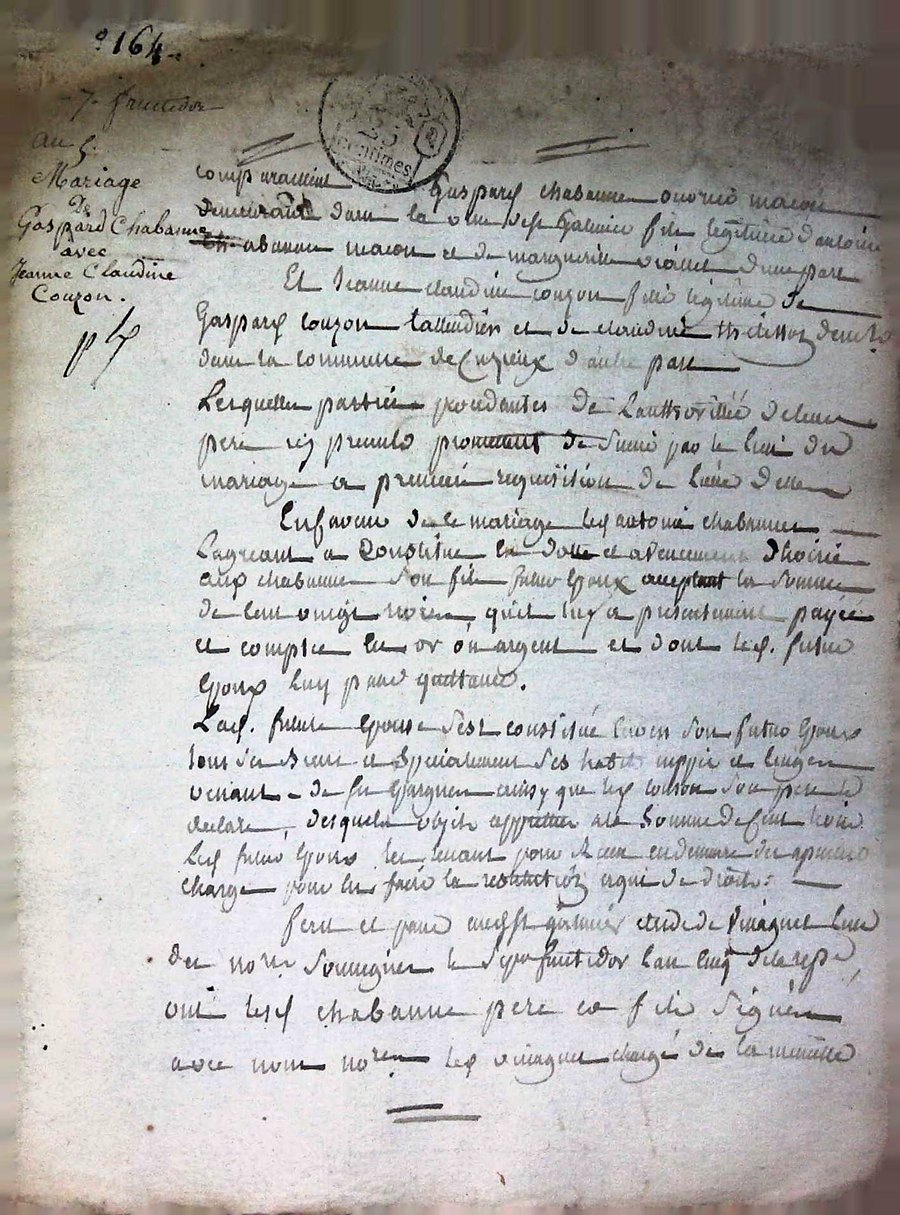 164
7 fructidor
an 5.
Mariage
De
Gaspard Chabanne
avec
Jeanne Claudine
Couzon.
25
centimes
comparaissent Gaspard chabanne ouvrier macon
demeurant dans la ville de St Galmier fils légitime d'antoine
chabanne macon et de marguerite viallet d'une part
Et Jeanne claudine couzon fille légitime de
Gaspard couzon taillendier et de claudine
dans la commune de Cuzieux d'autre part
Lesquelles parties procedantes de L'authorité de leur
pere icy presents promettent de s'unir par le lien du
mariage a premiere requisition de l'une d'elle
En faveur de ce mariage led antoine chabanne
Lagreant a Constitué en dotte et avencement d'hoirie
aud chabanne son fils futur Epoux acceptant la somme
de cent vingt livres qu'il luy a presentement payée
et comptée en or ou argent et dont led. futur
Epoux luy passe quittance.
Lad. future Epouse s'est constitué envers son futur Epoux
tous ses biens et specialement ses habits nippes et linges
venant de ses Epargnes ainsy que led couzon son pere le
declare, desquels objets a la somme de Cent livres
Led futur Epoux
charge pour en faire la restitution a qui de droit.
fait et passé aud St galmier etude de vinagnet l'un
des nores soussignés le sept fructidor l'an cinq de la rep.
ont lesd chabanne pere et fils signés
avec nous nores led vinagnet chargé de la minutte